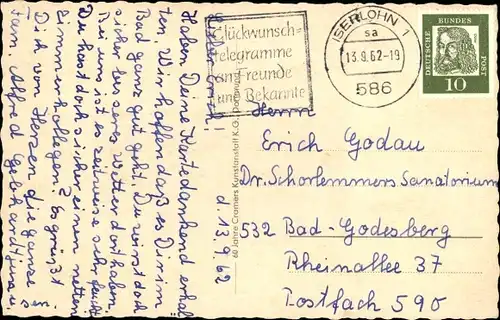 Glückwunsch-
telegramme
an Freunde
und Bekannte
ISERLOHN 1
sa
13.9.62-19
586
DEUTSCHE BUNDESPOST
10
d. 13.9.62
Haben Deine Karte dankend erhal
ten. Wir hoffen daß es Dir im
Bad ganz gut geht. Du wirst doch
sicher besseres Wetter dort haben.
Bei uns ist es zeitweise sehr feucht
Du hast doch sicher einen netten
Zimmerkollegen? Es grüßt
Dich vom Herzen die ganze
Fam. Alfred Gebhardt
60 Jahre Cramers Kunstanstalt K.G., Dortmund
Herrn
Erich Godau
Dr. Schorlemmers Sanatorium
532 Bad-Godesberg
Rheinallee 37
Postfach 590